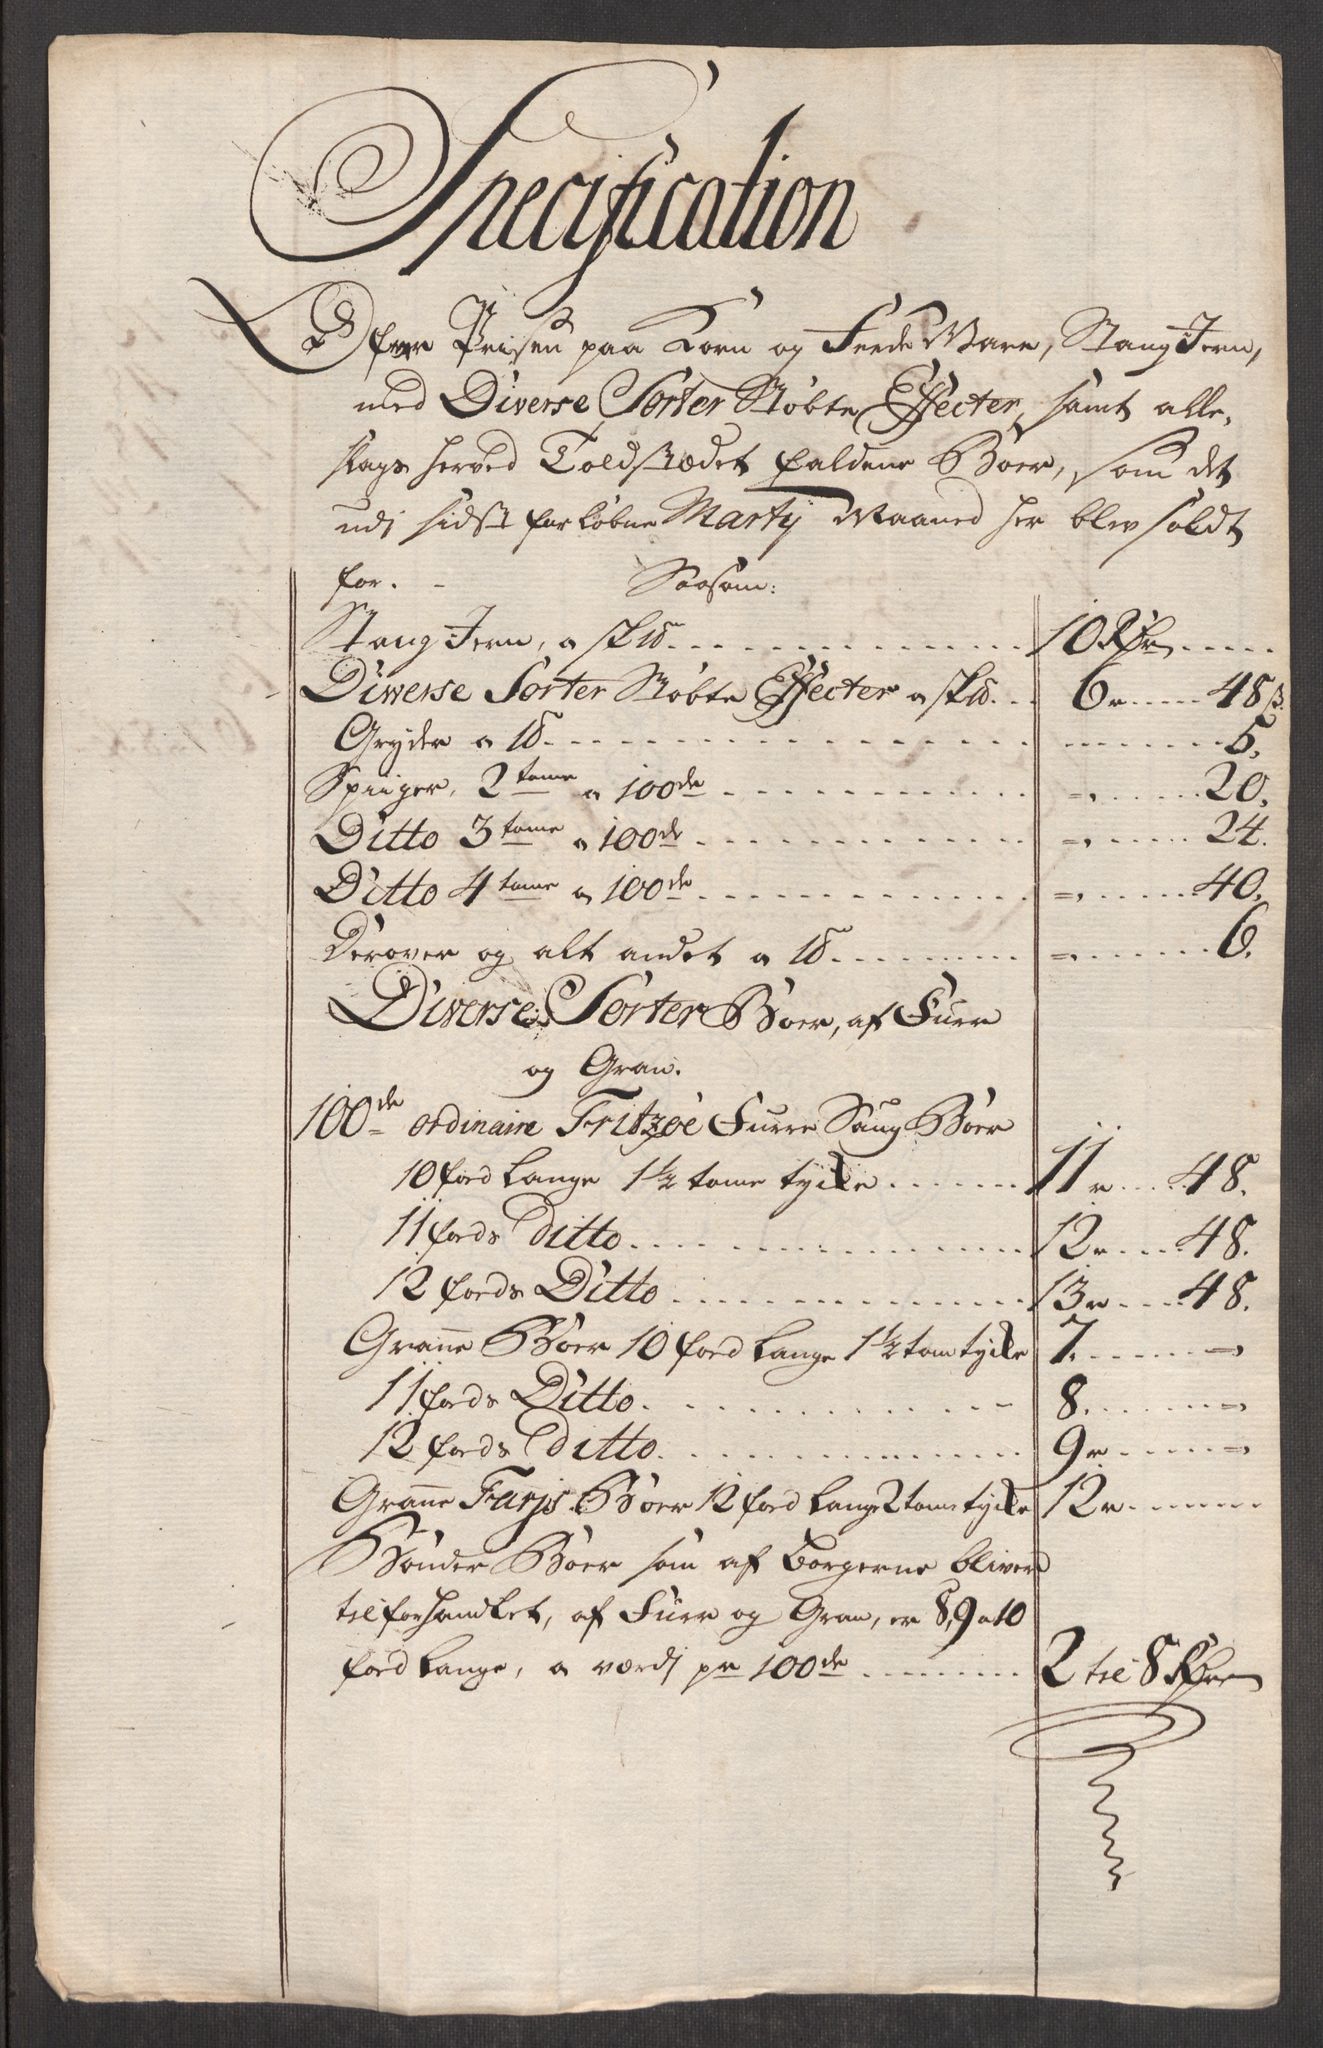 Specification
Ofver Prisen paa Korn og Feede Ware, Stang Jern,
med Diverse Sorter Støbte Effecter, samt alle,
slags herved Toldstædet faldene Boer, som det
udj sidst forløbne Martij Maaned her blev soldt
for. - Saasom:
Stang Jern, a sk℔ 10 Rdr
Diverse Sorter Støbte Effecter a sk℔ 6 r 48 s.
Gryder a ℔ 5.
Spiiger, 2 tome a 100de = 20.
Ditto 3 tome a 100de = 24.
Ditto 4 tome a 100de = 40.
Derover og alt andet a ℔ = 6.
Diverse Sorter Boer, af Fuer
og Gran.
100de ordinaire Fritzöe Furre Saug Boer
10 fod Lange 1½ tome tycke 11 r 48.
11 fods Ditto 12 r 48.
12 fods Ditto 13 r 48.
Granne Boer 10 fod Lange 1½ tom tycke 7. =
11 fods Ditto 8. =
12 fods Ditto 9 r =
Granne Farjs Boer 12 fod Lange 2 tome tycke 12 r
Bønder Boer som af Borgerne bliver
tilforhandlet, af Fuer og Gran, er 8, 9 a 10
fod Lange, a værdj pr 100de 2 til 8 Rdr